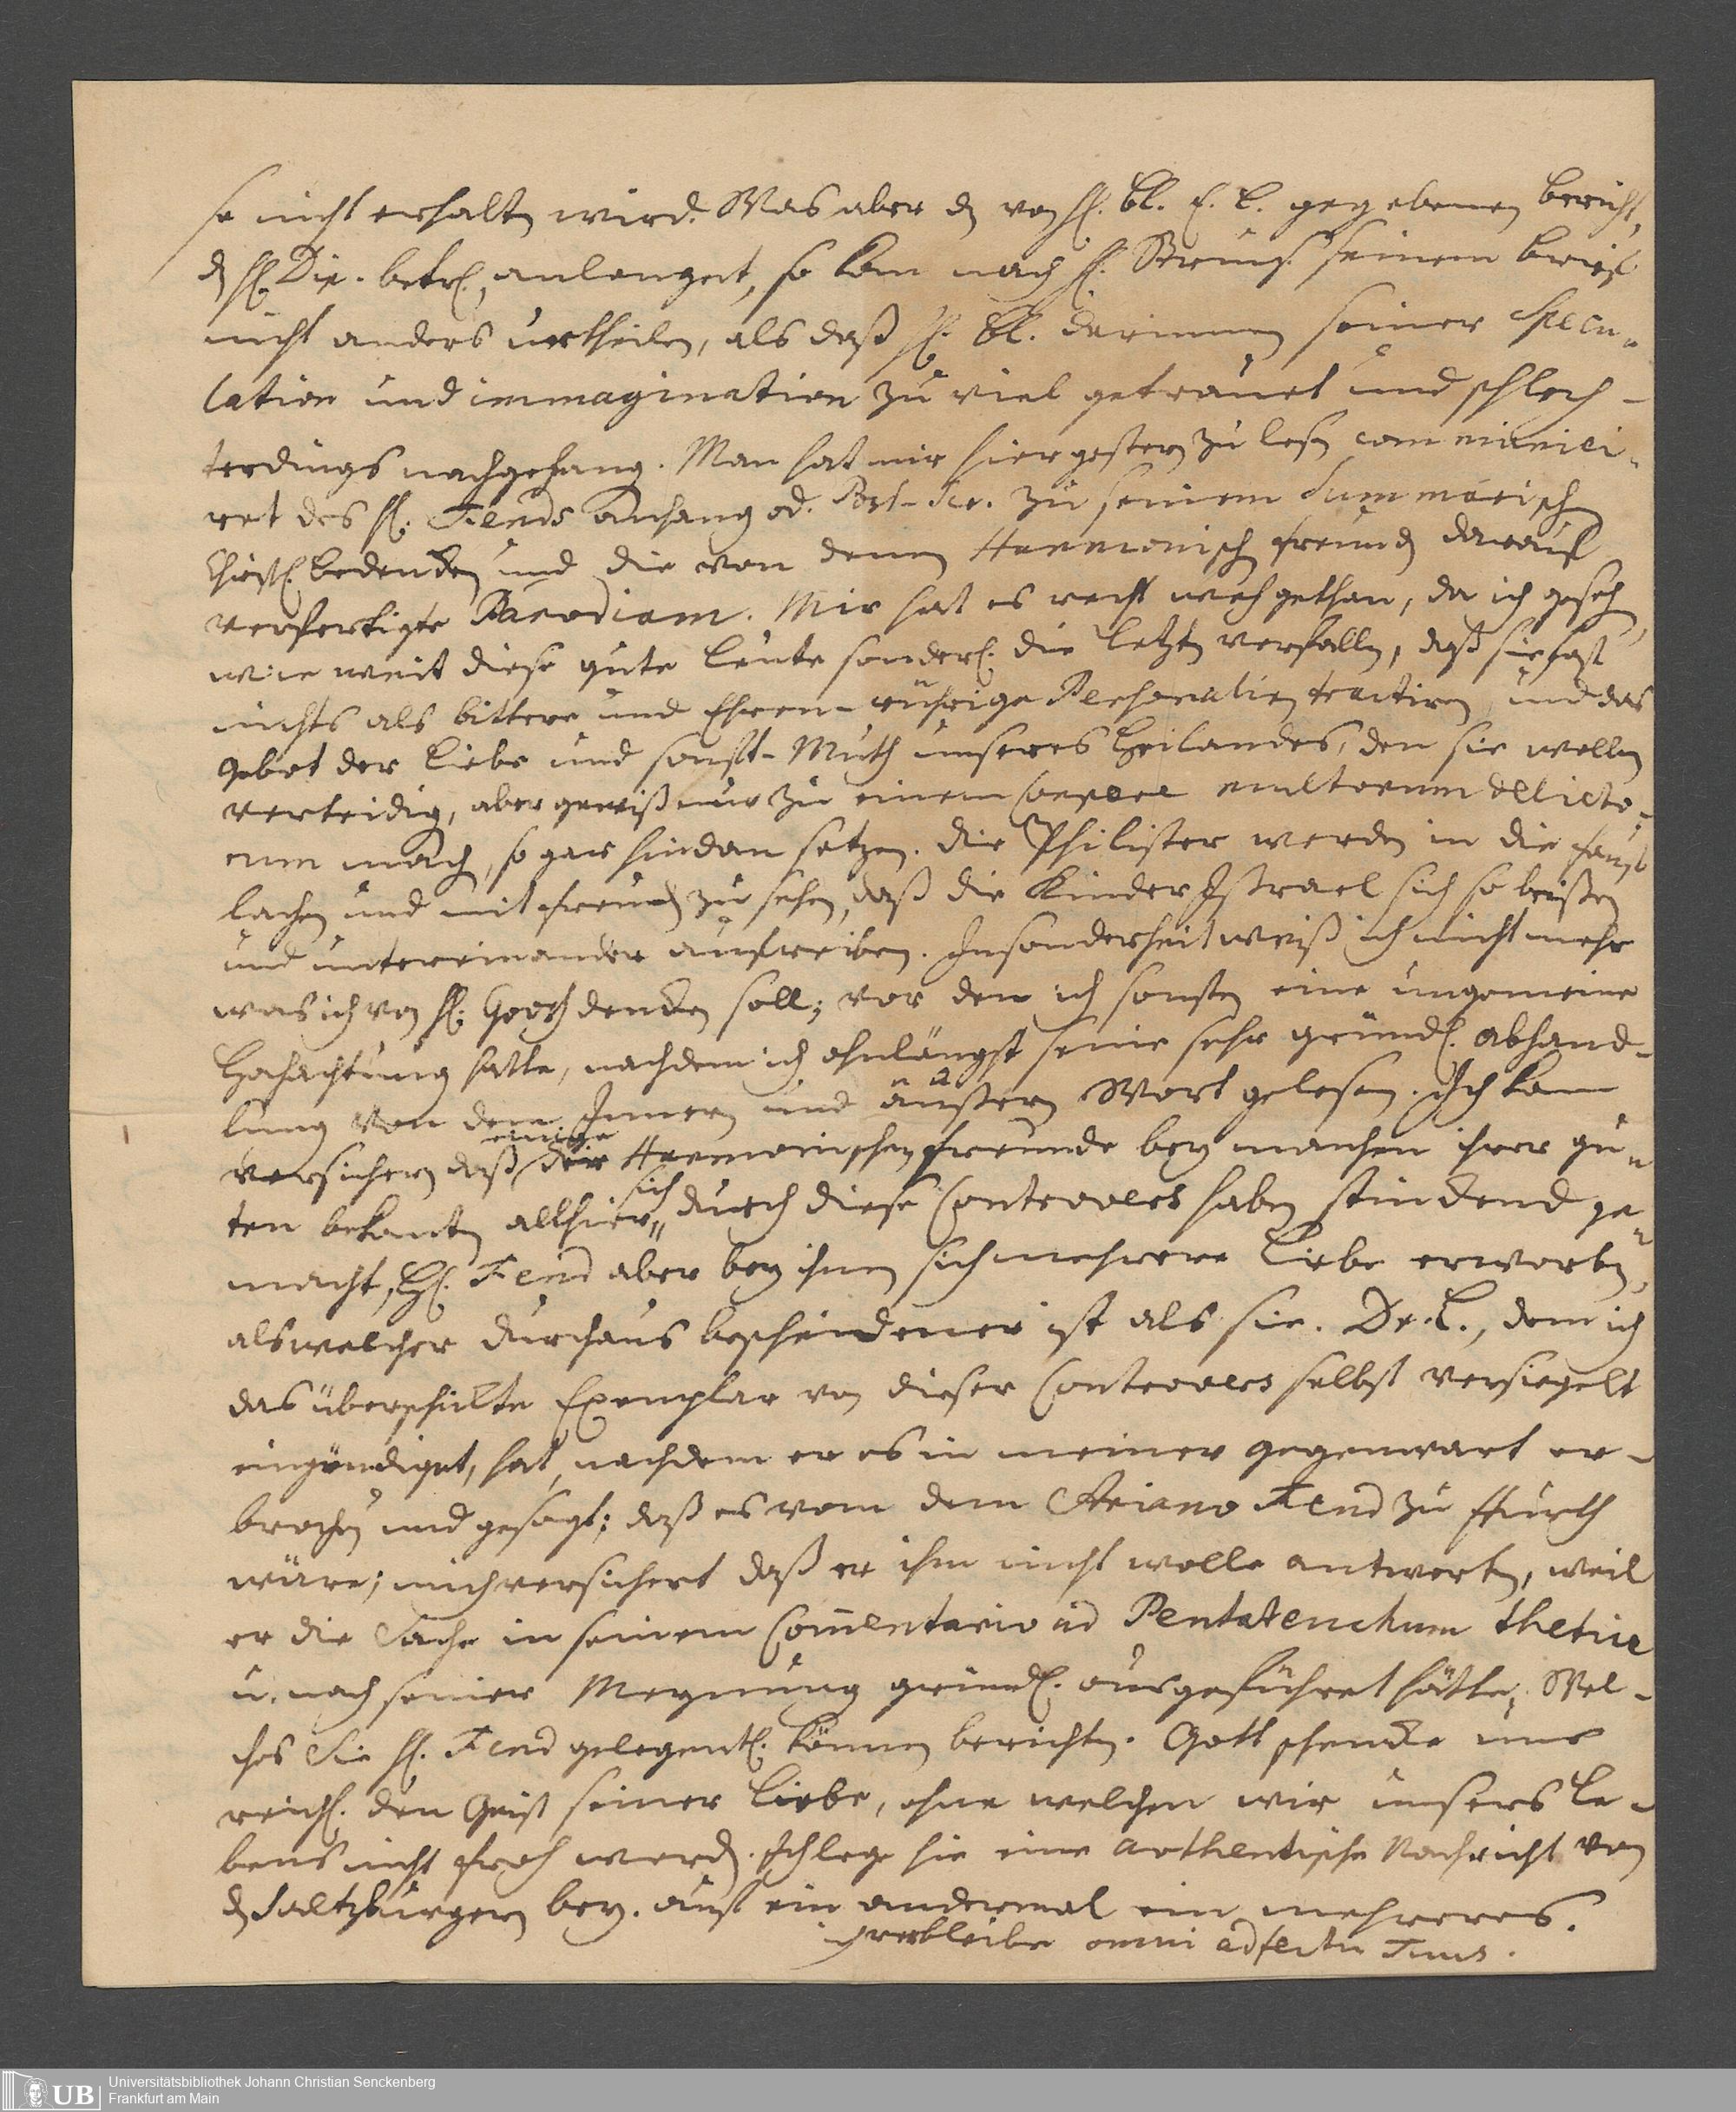 so nicht erhalten wird. Was aber dn von H. Bl. E. L. gegebenen bericht,
dn H. Dip. betr., anlanget, so kan nach H. seinem brief
nicht anders urtheilen, als daß H. Bl. darinnen seiner specu-
lation und immagination zu viel getrauet und schlech-
terdings nachgehang. Man hat mir hier gestern zu lesen communici-
ret des H. Fends Anhang od. Post-Scr. zu seinem Summarisch
Christl. bedencken und die von denen Harmonisch freunden darauf
verfertigte Parodiam. Mir hat es recht weh gethan, da ich gesehn,
wie weit diese gute leute sonderl. die letzten verfallen, daß sie fast
nichts als bittere und Ehren-rührige Personalien tractiren und das
Gebot der Liebe und sanft-Muth unseres Heilandes, den sie wollen
verteidig, aber gewiß nur zu einem corpore multorum delicto-
rum mach, so gar hindan setzen. die Philister werden in die faust
lachen und mit freuden zu sehen, daß die Kinder Israel sich so beißen
und untereinander aufreiben. Insonderheit weiß ich nicht mehr
was ich von H. Groß dencken soll; vor den ich sonsten eine ungemeine
Hochachtung hatte, nachdem ich ohnlängst seine sehr gründl. abhand-
lung von dem Innern und äußern Wort gelesen. Ich kan
versichern daß einige der Harmonischen freunde bey manchen ihrer gu-
ten bekanten allhier sich durch diese Controvers haben stinckend ge-
macht, H. Fend aber bey ihnen sich mehrere Liebe erworben,
als welcher durchaus bescheidener ist als sie. Dr. L., dem ich
das überschickte Exemplar von dieser Controvers selbst versiegelt
eingehändiget, hat, nachdem er es in meiner gegenwart er-
brochen und gesagt; daß es vom dem Ariano Fend zu Ffurth
wäre; mich versichert daß er ihm nicht wolle antworten, weil
er die Sache in seinem Commentario ad Pentateuchum thetice
u. nach seiner Meynung gründl. ausgeführet hätte; Wel-
ches Sie H. Fend gelegentl. können berichten. Gott schencke uns
reichl. den Geist seiner Liebe, ohne welchen wir unsers Le-
bens nicht froh werden. Ich lege hie eine authentische Nachricht von
dn Saltzburgern bey. aufs ein andermal ein mehreres.
verbleibe omni adfectu Tuus.
Universitätsbibliothek Johann Christian Senckenberg
Frankfurt am Main
UB